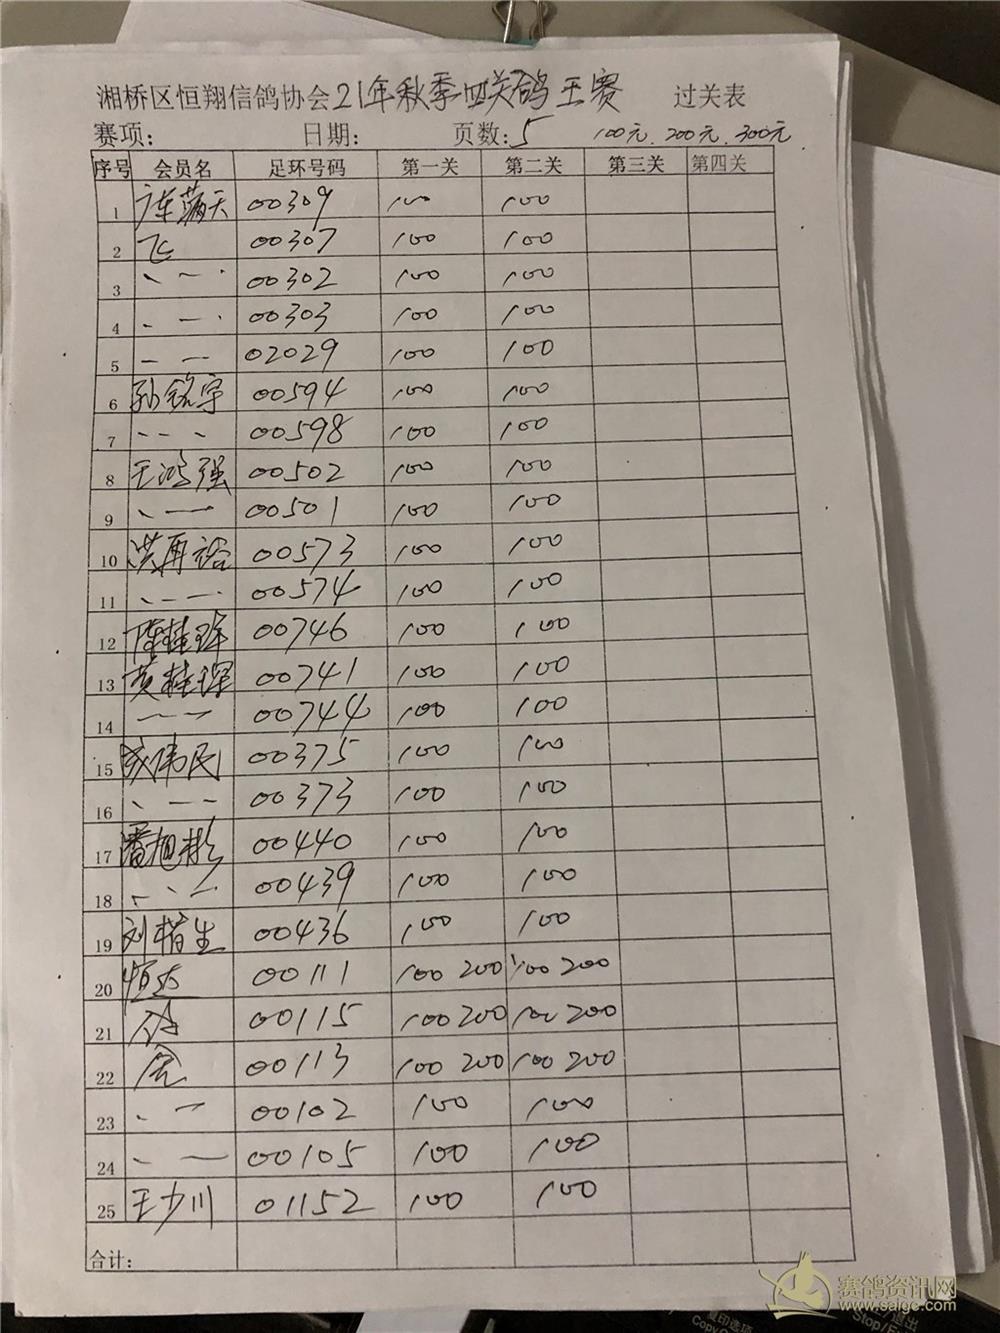 湘桥区恒翔信鸽协会21年秋季四关鸽王赛 过关表
赛项: 日期: 页数:5 100元.200元.300元
序号 会员名 足环号码 第一关 第二关 第三关 第四关
1 00309 100 100
2 飞 00307 100 100
3 、一一. 00302 100 100
4 、一一. 00303 100 100
5 一 一 02029 100 100
6 孙铭宇 00594 100 100
7 、一一 00598 100 100
8 王鸿强 00502 100 100
9 、一一 00501 100 100
10 洪再裕 00573 100 100
11 、一一 00574 100 100
12 陈桂珲 00746 100 100
13 黄桂琛 00741 100 100
14 一一一 00744 100 100
15 成伟民 00375 100 100
16 、一一 00373 100 100
17 潘旭彬 00440 100 100
18 、、一 00439 100 100
19 刘楷生 00436 100 100
20 恒达 00111 100 200 100 200
21 00115 100 200 100 200
22 00113 100 200 100 200
23 、一 00102 100 100
24 、一 00105 100 100
25 王少川 01152 100 100
合计:
赛鸽资讯网
www.saige.com
复印选项
Copy O
退出
Stop/